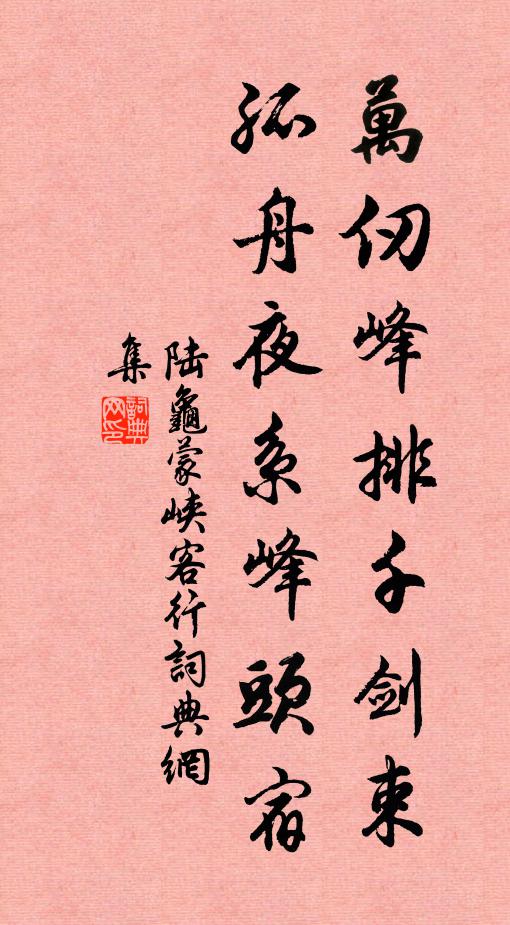 萬仞峰排千劍束
孤舟夜系峰頭宿
陆龜蒙峽客行詞典網
集
詞典
网印